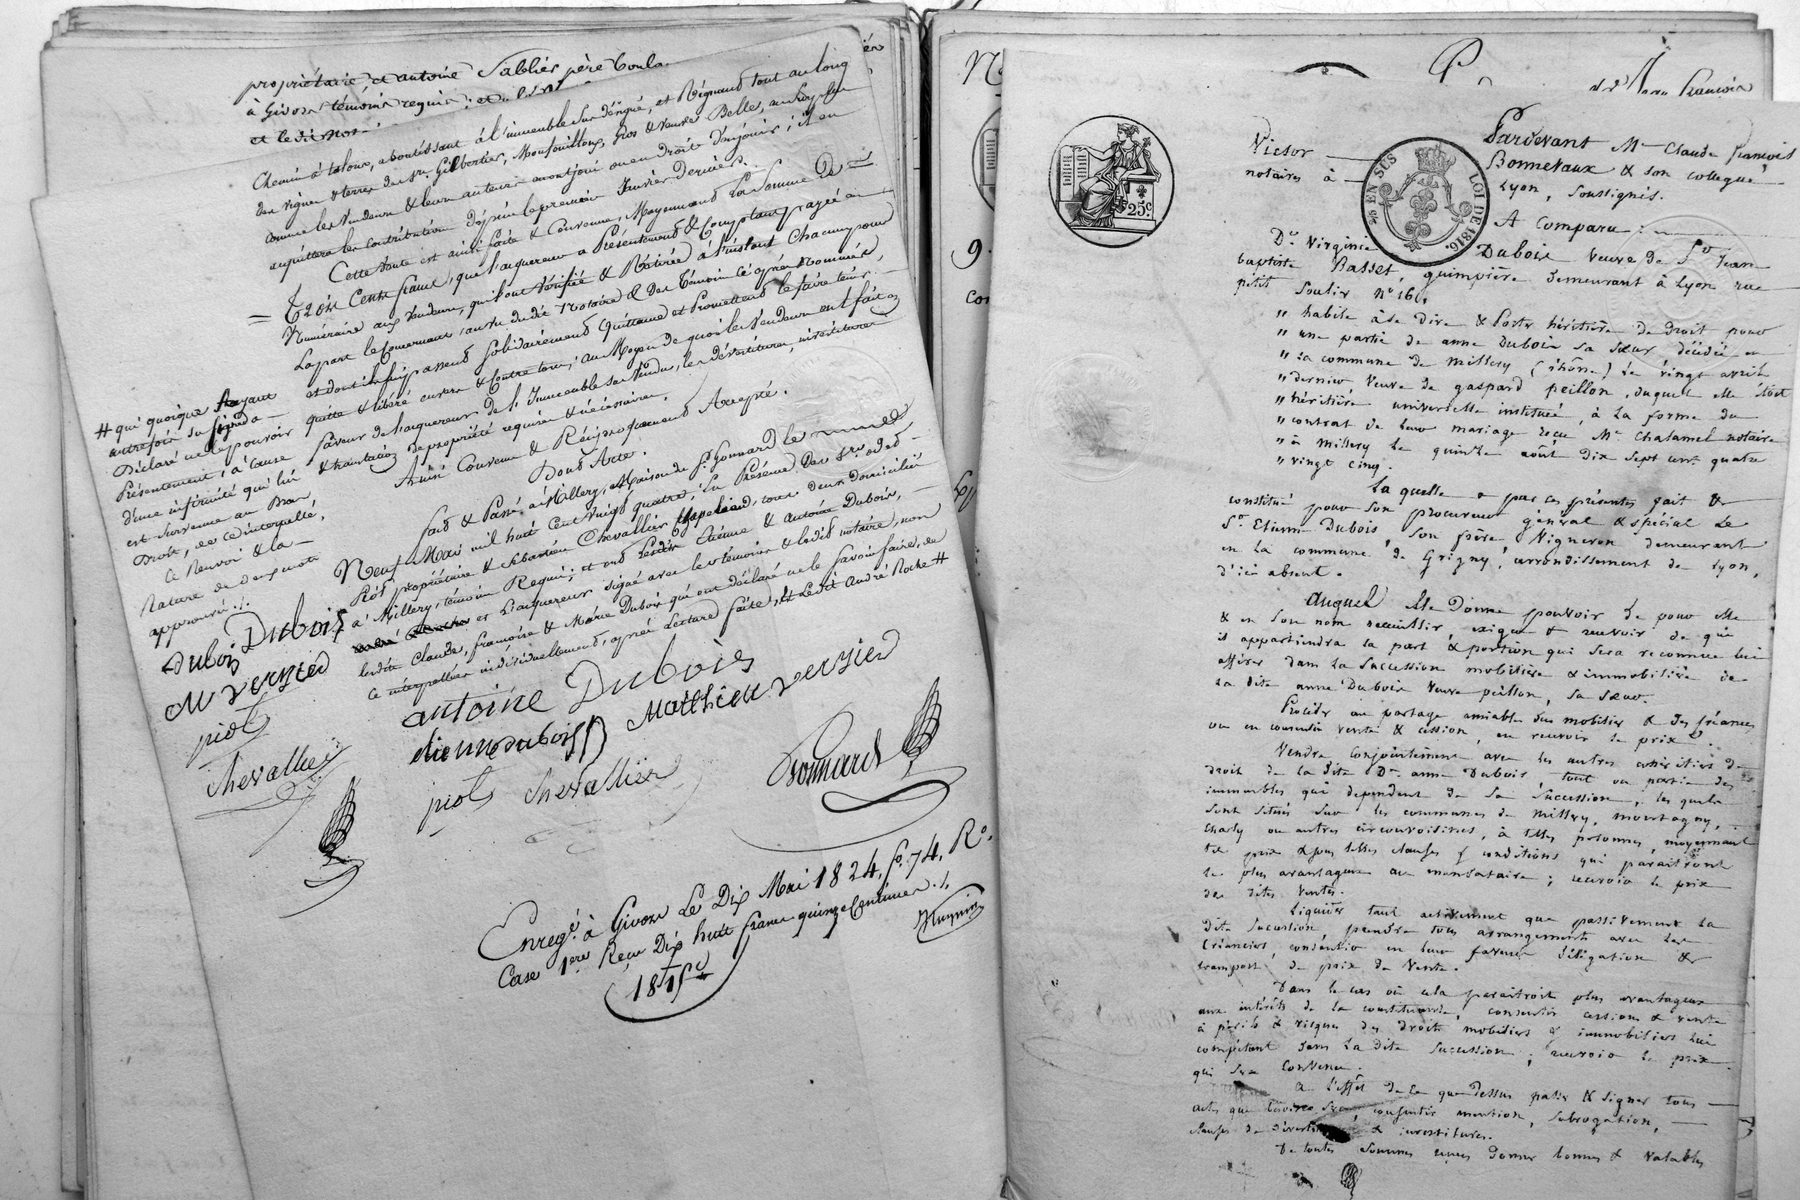 propriétaire, et antoine Sablier père
à Givors témoins requis; et
Chemin à talour, aboutissant à l'immeuble sus désigné, et Régnaud tout au long
des vignes & terres des Srs Gilbertier, Monfouilloux, Gros & veuve Belles, au surplus
comme les Vendeurs & leurs auteurs en ont joui ou eu droit d'en jouir; il en
acquittera les contributions depuis le premier Janvier dernier.
Cette Vente est ainsi faite & Convenue, Moyennant la Somme De
Trois Cents francs, que l'acquereur a Présentement & Comptant payée en
Numéraire aux Vendeurs, qui l'ont Vérifiée & Retirée à l'instant Chacun pour
La part le Concernant, au vu dudit Notaire & Des Témoins ci après nommés,
et dont ils lui passent solidairement Quittance et Promettent le faire tenir
quitte & libéré envers & contre tous; au Moyen de quoi les Vendeurs ont fait en
faveur de l'acquereur de l'Immeuble sus Vendu, les dévestitures, investitures
& translation de propriété requises & nécessaires.
Ainsi Convenu & Réciproquement Accepté.
Dont Acte.
fait & Passé à Millery, Maison de Sr Gonnard le
Neuf Mai mil huit Cent vingt quatre, En Présence Des Srs
Piot propriétaire & Sébastien Chevallier Chapelier, tous deux domiciliés
à Millery, témoins Requis; et ont lesdits Etienne & Antoine Dubois,
et l'acquereur signé avec les témoins & ledit notaire, non
lesdits Claude, françoise & Marie Dubois qui ont déclaré ne le Savoir faire, de
ce interpellés individuellement, après Lecture faite, # Ledit André Roche #
# qui quoique Ayant
autrefois su signer a
Déclaré ne le pouvoir
Présentement, à Cause
d'une infirmité qui lui
est survenue au Bras
Droit, de ce interpellé,
Ce Renvoi & la
Rature de deux mots
approuvés ./.
Dubois Dubois
M Vernier
piot
Chevallier
antoine Dubois
etienne dubois Matthieu vernier
piot Chevallier
Gonnard
Enregé. à Givors Le Dix Mai 1824, fo. 74, Ro.
Case 1ere Reçu Dix huit francs quinze Centimes ./.
18f 15c
Victor
notaires à
25c
25 EN SUS
LOI DE 1816.
Pardevant Me Claude François
Bonnevaux & son collegue
Lyon, soussignés.
A Comparu:
De Virginie Dubois veuve de Sr Jean
baptiste Basset, guimpière demeurant à Lyon rue
petit Soulier No 16,
" habile à se dire & Porter héritière de Droit pour
" une partie de anne Dubois sa sœur décédée en
" la commune de Millery (rhône) le vingt avril
" dernier veuve de gaspard peillon, duquel elle étoit
" héritière universelle instituée, à la forme du
" contrat de leur mariage reçu Me Chalamel notaire
" à Millery le quinze août dix sept cent quatre
" vingt cinq.
Laquelle a par ces présentes fait &
constitué pour son procureur général & spécial le
Sr. Etienne Dubois, son frère Vigneron demeurant
en la commune de Grigny, arrondissement de Lyon,
d'ici absent.
Auquel Elle Donne pouvoir de pour elle
& en son nom recueillir, exiger & recevoir de qui
il appartiendra la part & portion qui sera reconnue lui
afférer dans la succession mobilière & immobilière de
la dite anne Dubois veuve peillon, sa sœur.
Procéder au partage amiable des mobilier & des créances
ou en consentir vente & cession, en recevoir le prix.
Vendre conjointement avec les autres héritiers de
droit de la dite De anne Dubois, tout ou partie des
immeubles qui dépendent de sa succession, lesquels
sont situés sur les communes de Millery, Montagny,
Charly ou autres circonvoisines, à telles personnes, moyennant
tel prix & sous telles clauses & conditions qui paraitront
le plus avantageux au mandataire; recevoir le prix
des dites ventes.
Liquider tant activement que passivement la
dite succession, prendre tous arrangements avec les
créanciers, consentir en leur faveur délégation &
transport de prix de vente.
Dans le cas où cela paraitroit plus avantageux
aux intérêts de la constituante, consentir cession & vente
à périls & risques des droits mobiliers & immobiliers lui
compétant dans la dite succession; recevoir le prix
qui sera convenu.
A l'effet de ce que dessus passer & signer tous
actes que besoin sera, consentir mention, subrogation,
clauses de & investitures.
De toutes sommes reçues donner bonnes & valables